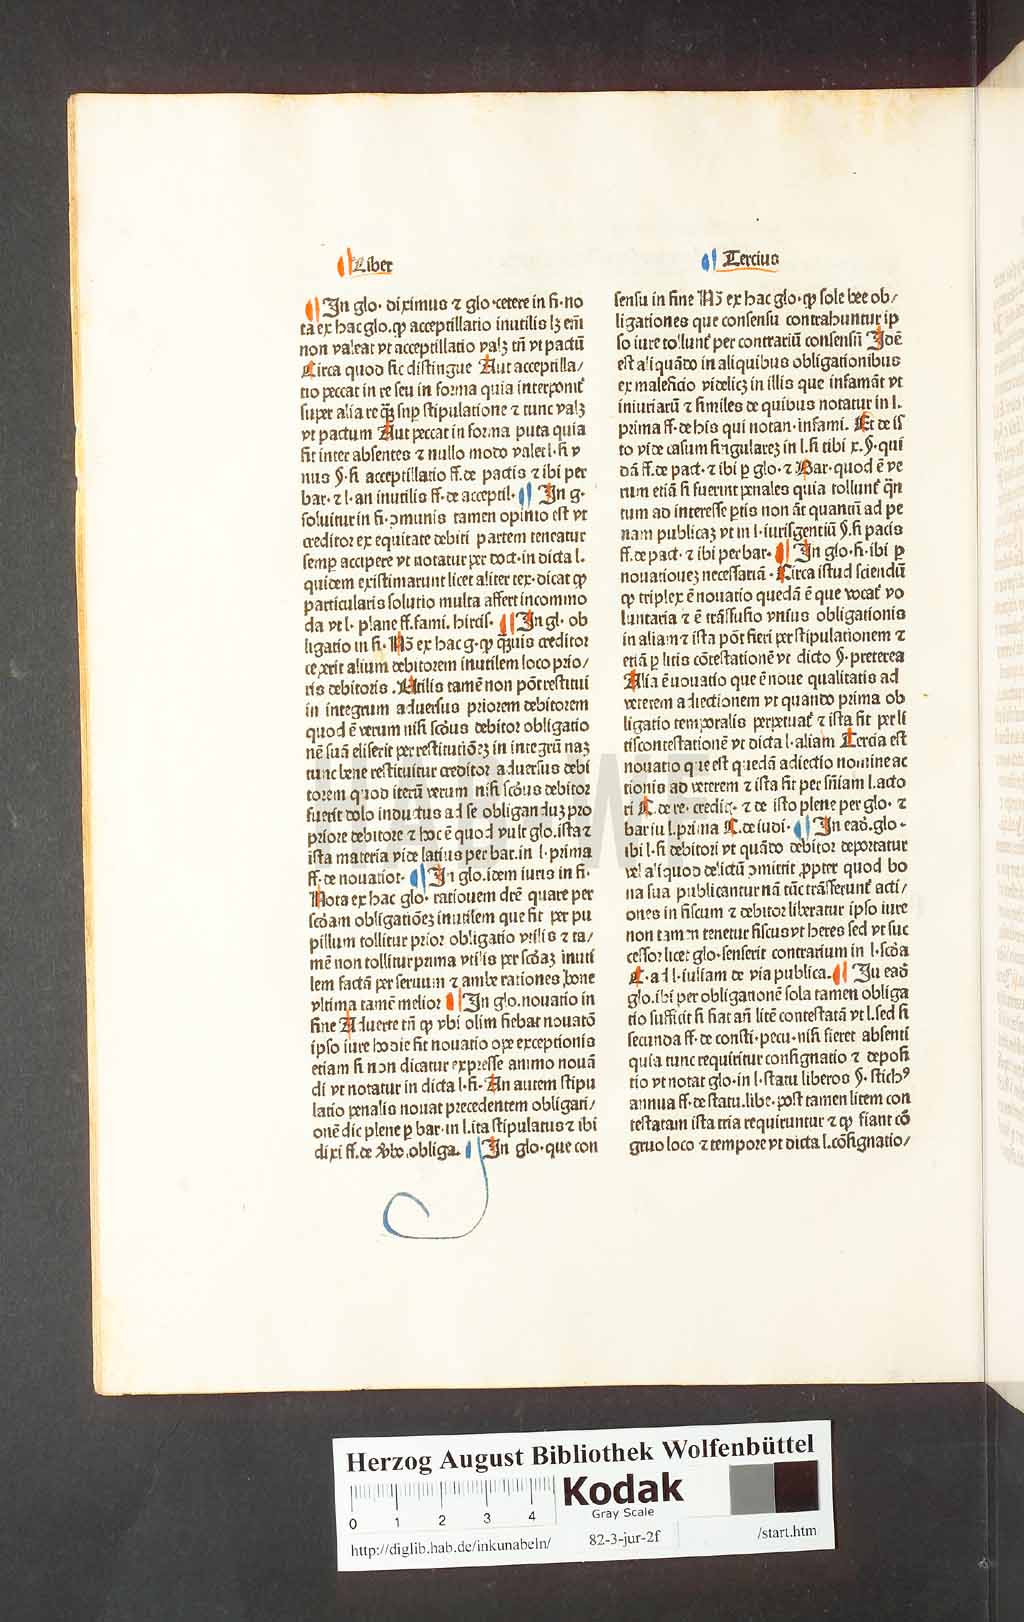 Liber
Tercius
In glo· diximus ⁊ glo·cetere in fi·no
ta ex hac glo.ꝙ acceptillatio inutilis lꝫ em̄
non valeat vt acceptillatio valꝫ tn̄ vt pactū
Circa quod sic distingue Aut acceptilla/
tio peccat in re seu in forma quia interponit᷑
super alia re q̄ꝫ sup stipulatione ⁊ tunc valꝫ
vt pactum Aut peccat in forma puta quia
fit inter absentes ⁊ nullo modo valet l·si v
nus §·si acceptillatio ff.de pactis ⁊ ibi per
bar·⁊ l·an inutilis ff·de acceptil· In g·
soluitur in fi·ↄmunis tamen opinio est vt
creditor ex equitate debiti partem teneatur
semꝑ accipere vt notatur per doct·in dicta l·
quidem existimarunt licet aliter tex·dicat ꝙ
particularis solutio multa affert incommo
da vt l·plane ff.fami.hircis· In gl·ob
ligatio in fi·Nō ex hac g·ꝙ q̄ꝫuis creditor
ceperit alium debitorem inutilem loco prio/
ris debitoris.Vtilis tamē non pōt restitui
in integrum aduersus priorem debitorem
quod ē verum nisi scd̄us debitor obligatio
nē suā eliserit per restitutiōeꝫ in integrū naꝫ
tunc bene restituitur creditor aduersus debi
torem quod iterū verum nisi scd̄us debitor
fuerit dolo inductus ad se obliganduꝫ pro
priore debitore ⁊ hoc ē quod vult glo.ista ⁊
ista materia vide latius per bar.in l·prima
ff·de nouatior· In glo.idem iuris in fi·
Nota ex hac glo· rationem dr̄e quare per
scd̄am obligatiōeꝫ inutilem que fit per pu
pillum tollitur prior obligatio vtilis ⁊ ta/
mē non tollitur prima vtilis per scd̄aꝫ inuti
lem factā per seruum ⁊ ambe rationes bone
vltima tamē melior In glo.nouatio in
fine Aduerte tn̄ ꝙ vbi olim fiebat nouatō
ipso iure hodie fit nouatio ope exceptionis
etiam si non dicatur expresse animo nouā
di vt notatur in dicta l·fi·An autem stipu
latio penalis nouat precedentem obligati/
onē dic plene ꝑ bar·in l.ita stipulatus ⁊ ibi
dixi ff.de v̓bo.obliga. In glo·que con
sensu in fine Nō ex hac glo·ꝙ sole hee ob/
ligationes que consensu contrahuntur ip
so iure tollunt᷑ per contrariū consensū Idē
est aliquādo in aliquibus obligationibus
ex maleficio videlicꝫ in illis que infamāt vt
iniuriarū ⁊ similes de quibus notatur in l.
prima ff·de his qui notan·infami. Et de is
to vide casum singulareꝫ in l.si tibi x.§·qui
dā ff.de pact·⁊ ibi ꝑ glo·⁊ Bar·quod ē ve
rum etiā si fuerint penales quia tollunt᷑ q̄n
tum ad interesse ꝑtis non āt quantū ad pe
nam publicaꝫ vt in l·iurisgentiū §.si pacis
ff.de pact·⁊ ibi per bar· In glo·fi·ibi ꝑ
nouationeꝫ necessariā·Circa istud sciendū
ꝙ triplex ē nouatio quedā ē que vocat᷑ vo
luntaria ⁊ ē trāsfusio vnius obligationis
in aliam ⁊ ista pōt fieri per stipulationem ⁊
etiā ꝑ litis cōtestationē vt dicto §·preterea
Alia ē nouatio que ē noue qualitatis ad
veterem adiectionem vt quando prima ob
ligatio temporalis perpetuat᷑ ⁊ ista fit per li
tiscontestationē vt dicta l·aliam Tercia est
nouatio que est quedā adiectio nomine ac
tionis ad veterem ⁊ ista fit per sn̄iam l.acto
ri C.de re·credit·⁊ de isto plene per glo·⁊
bar in l.prima C.de iudi· In ead̄.glo·
ibi l·si debitori vt quādo debitor deportatur
vel aliquod delictū ↄmittit ꝓpter quod bo
na sua publicantur nā tūc trāsferunt᷑ acti/
ones in fiscum ⁊ debitor liberatur ipso iure
non tamen tenetur fiscus vt heres sed vt suc
cessor licet glo·senserit contrarium in l·scd̄a
C·ad l·iuliam de via publica. In ead̄
glo.ibi per obligationē sola tamen obliga
tio sufficit si fiat an̄ litē contestatā vt l.sed si
secunda ff·de consti·pecu·nisi fieret absenti
quia tunc requiritur consignatio ⁊ deposi
tio vt notat glo·in l·statu liberos §·stichꝰ
annua ff·de statu.libe·post tamen litem con
testatam ista tria requiruntur ⁊ ꝙ fiant cō
gruo loco ⁊ tempore vt dicta l.cōsignatio/
HAB-WF
Herzog August Bibliothek Wolfenbüttel
0 1 2 3 4
Kodak
Gray Scale
http://diglib.hab.de/inkunabeln/ 82-3-jur-2f /start.htm